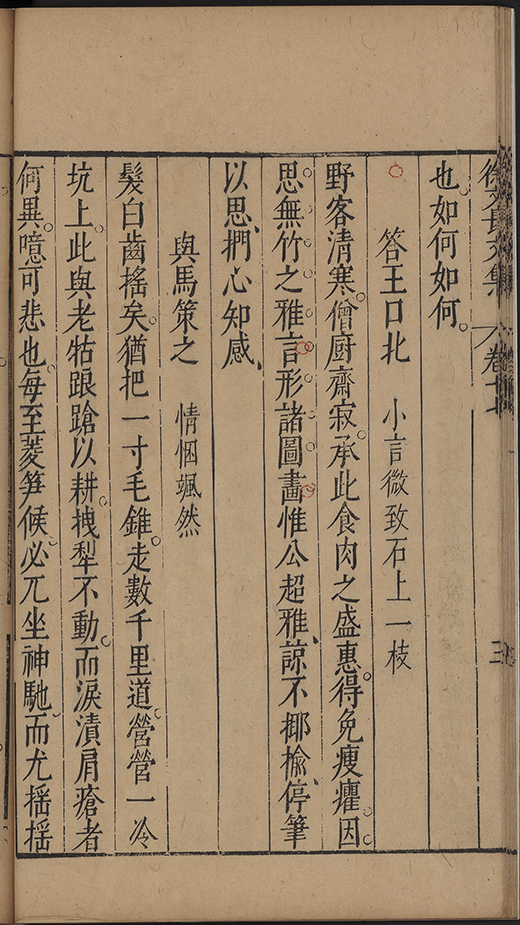 徐文長文集 卷十七 三
也如何如何。
答王口北 小言微致石上一枝
野客清寒。僧廚齋寂。承此食肉之盛惠。得免瘦癯。因
思無竹之雅言。形諸圖畫。惟公超雅、諒不揶揄、停筆
以思、捫心知感、
與馬策之 情悃颯然
髮白齒搖矣。猶把一寸毛錐。走數千里道。營營一冷
坑上。此與老牯踉蹌以耕。拽犁不動。而淚漬肩瘡者
何異。噫。可悲也。每至菱笋候。必兀坐神馳。而尤搖搖